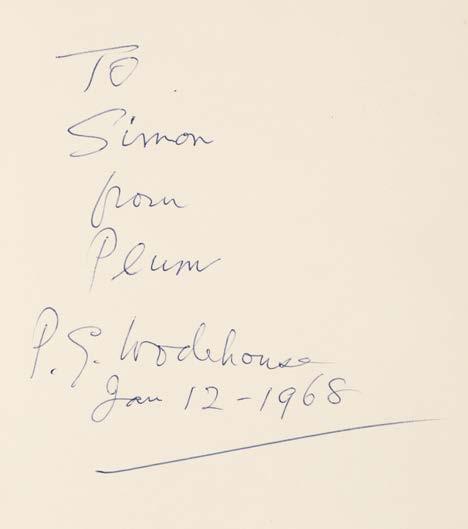 To
Simon
from
Plum
P. G. Wodehouse
Jan 12 - 1968